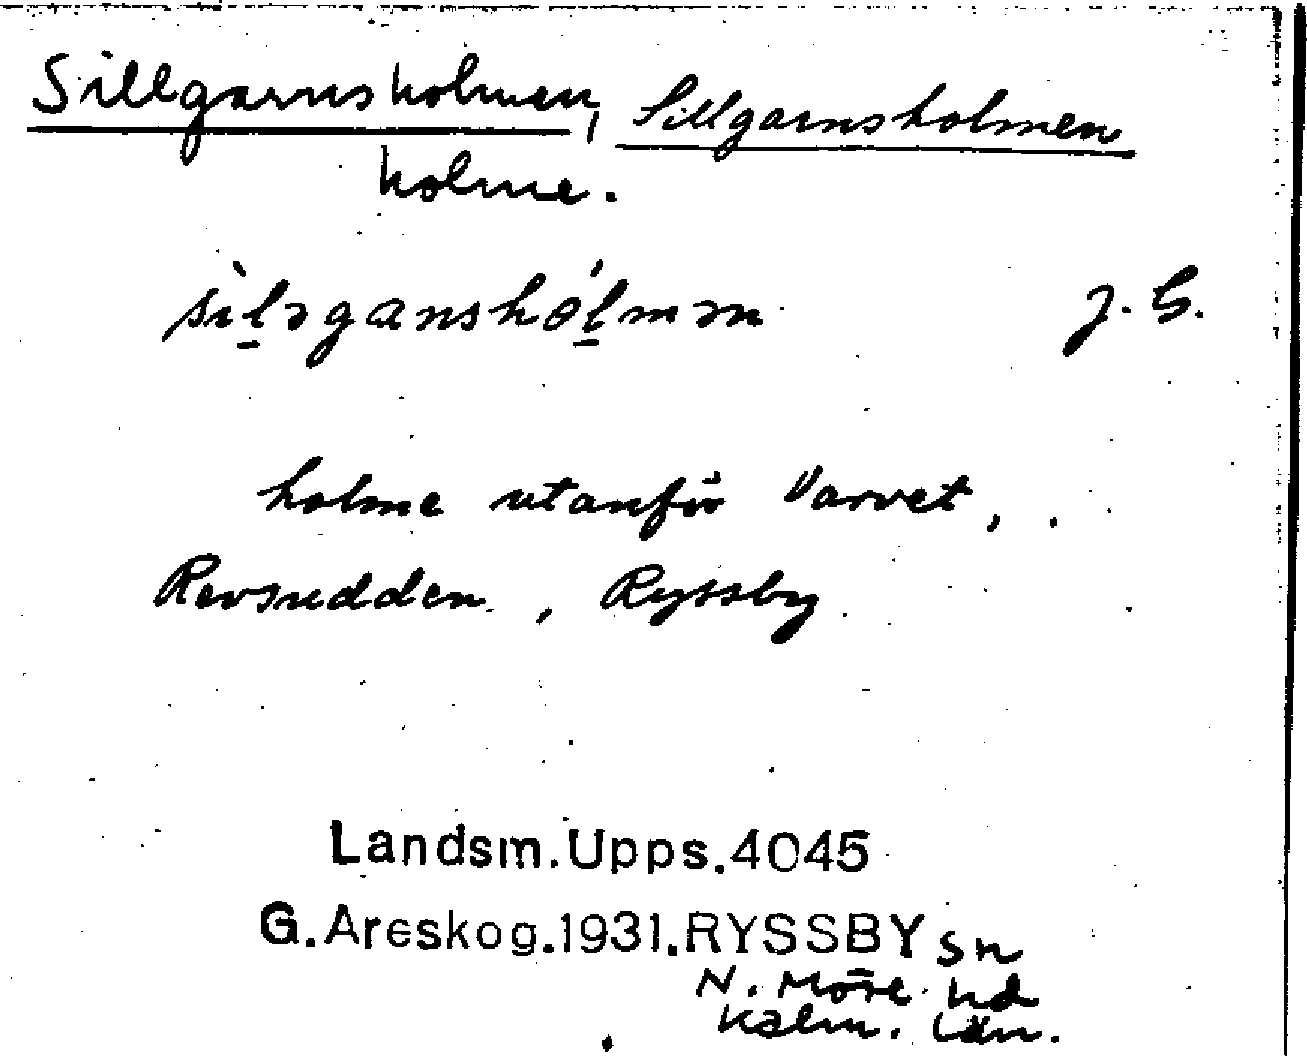 Sillgarnsholmen, Sillgarnsholmen
holme.
sìl̠əganshól̠mən J. G.
holme utanför Varvet,
Revsudden, Ryssby
Landsm.Upps.4045
G.Areskog.1931.RYSSBY sn
N. Möre hd
Kalm. län.